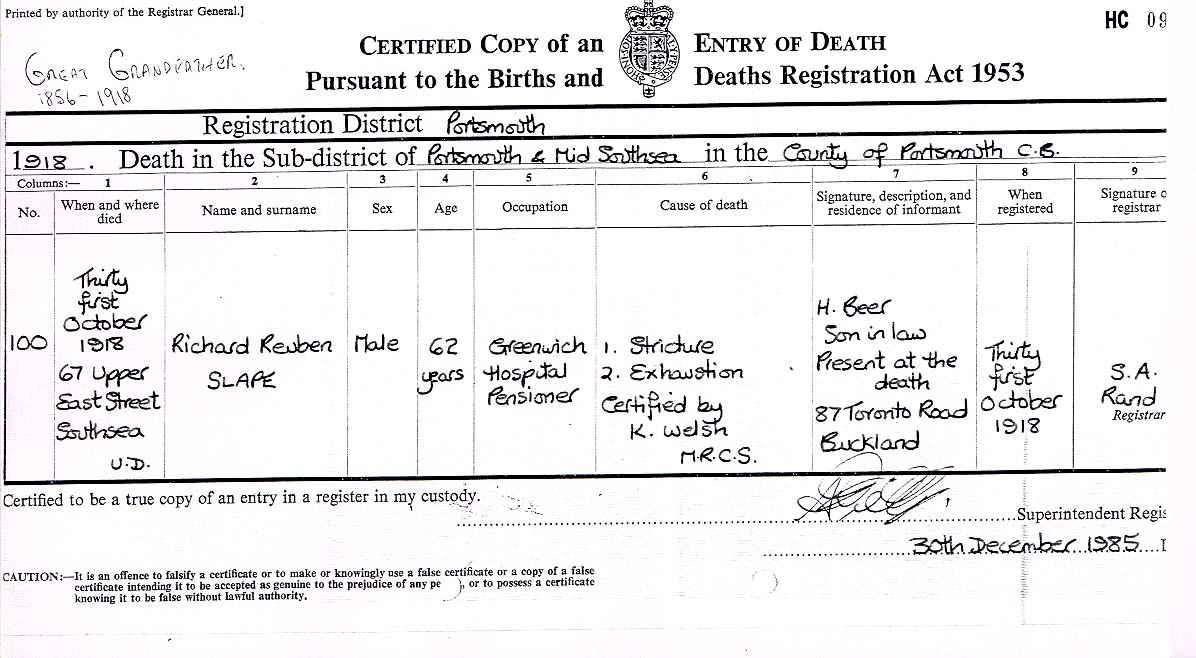 Printed by authority of the Registrar General.]
HC 09
GREAT GRANDFATHER.
1856-1918
CERTIFIED COPY of an ENTRY OF DEATH
Pursuant to the Births and Deaths Registration Act 1953
Registration District Portsmouth
1918. Death in the Sub-district of Portsmouth & Mid Southsea in the County of Portsmouth C.B.
Columns:— 1 2 3 4 5 6 7 8 9
No. When and where died Name and surname Sex Age Occupation Cause of death Signature, description, and residence of informant When registered Signature registrar
100
Thirty
first
October
1918
67 Upper
East Street
Southsea
U.D.
Richard Reuben
SLAPE
Male
62
years
Greenwich
Hospital
Pensioner
1. Stricture
2. Exhaustion
Certified by
K. Welsh
M.R.C.S.
H. Beer
Son in law
Present at the
death
87 Toronto Road
Buckland
Thirty
first
October
1918
S.A.
Rand
Registrar
Certified to be a true copy of an entry in a register in my custody.
Superintendent Regis
30th December 1985
CAUTION:—It is an offence to falsify a certificate or to make or knowingly use a false certificate or a copy of a false
certificate intending it to be accepted as genuine to the prejudice of any pe ), or to possess a certificate
knowing it to be false without lawful authority.